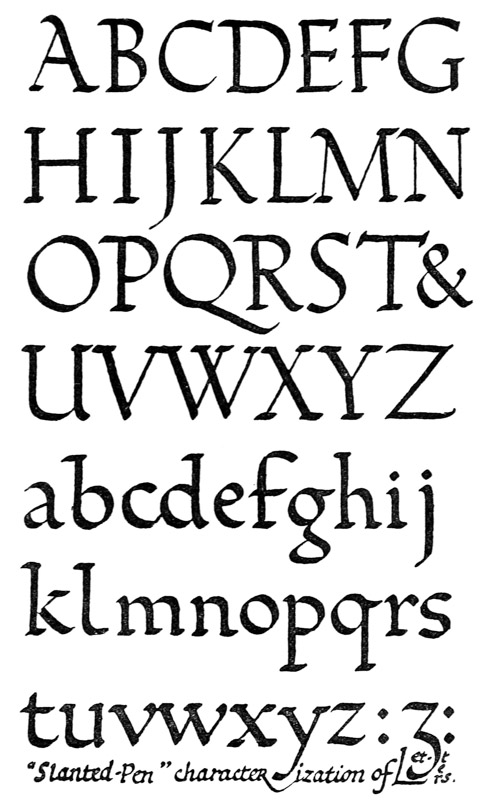 ABCDEFG
HIJKLMN
OPQRST&
UVWXYZ
abcdefghij
klmnopqrs
tuvwxyz:ʒ:
"Slanted-Pen" characterization of Letters.